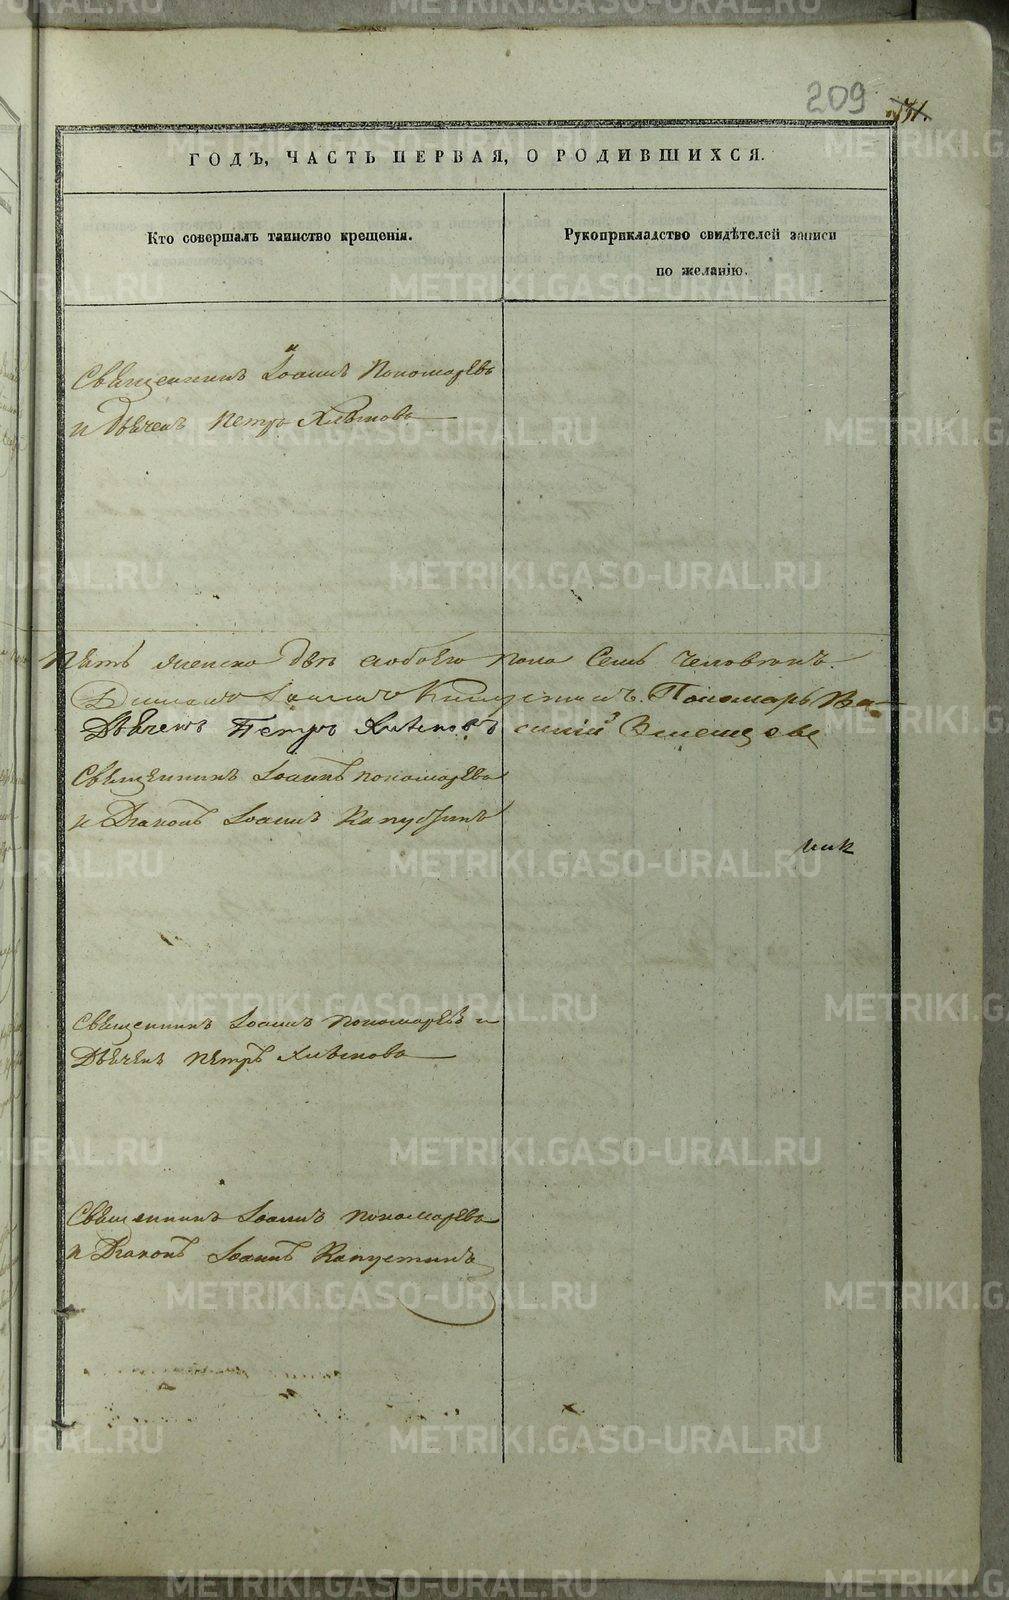 209
ГОДЪ, ЧАСТЬ ПЕРВАЯ, О РОДИВШИХСЯ.
Кто совершалъ таинство крещенія.
Рукоприкладство свидѣтелей записи
по желанію.
Священникъ Іоаннъ Пономаревъ
и Дьячекъ Петръ Хлѣновъ
Пять женска Обоего пола Семь человѣкъ.
Діаконъ Іоаннъ Капустинъ. Пономарь Ва-
Дьячекъ Петръ Хлѣновъ силій
Священникъ Іоаннъ Пономаревъ
и Діаконъ Іоаннъ Капустинъ
Священникъ Іоаннъ Пономаревъ и
Дьячекъ Петръ Хлѣновъ
Священникъ Іоаннъ Пономаревъ
и Діаконъ Іоаннъ Капустинъ
METRIKI.GASO-URAL.RU